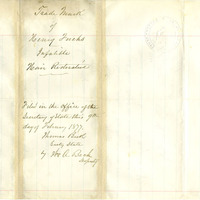 Trade Mark
of
Henry Fuchs
Infallible
Hair Restorative
Filed in the office of the
Secretary of State this 9th
day of February 1877.
Thomas
Secty State
by Wm C.
Deputy